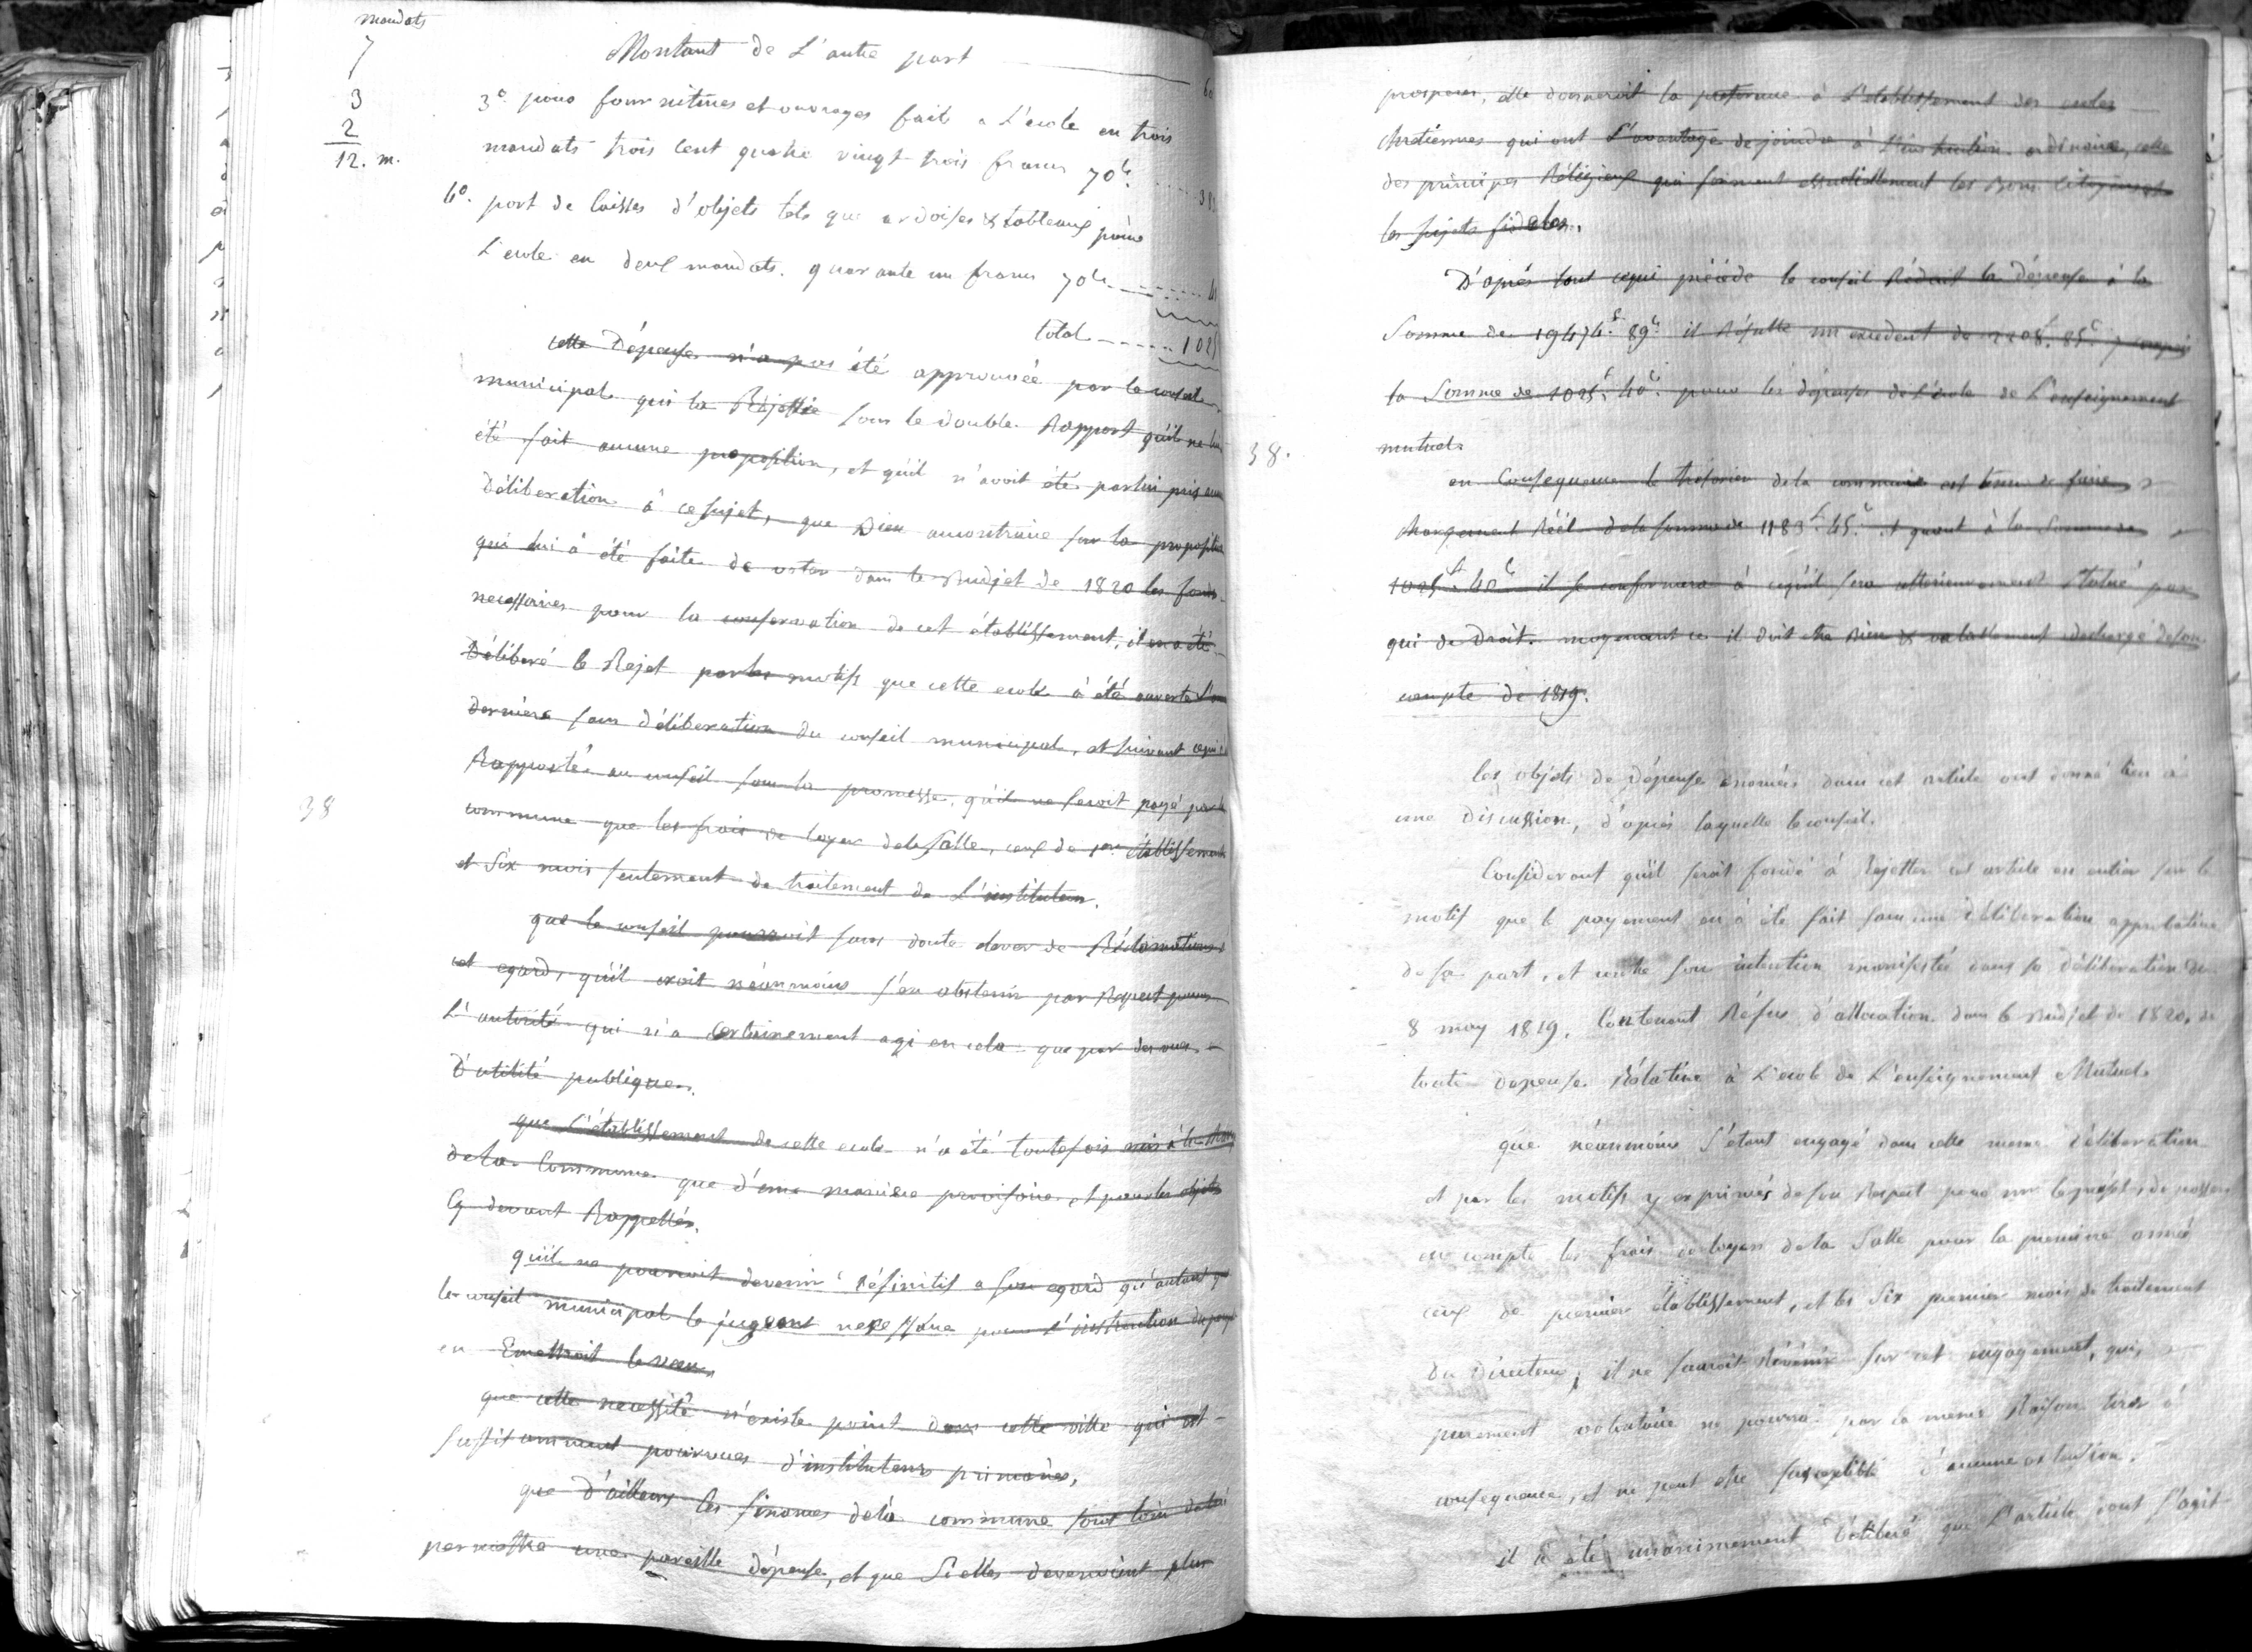 mandats
7
3
2
12. m.
Montant de L'autre part
3º pour fournitures et ouvrages fait a L'ecole en trois
mandats trois Cent quatre vingt trois francs 70c.
4º. port de Caisses d'objets tels que ardoises & tableaux pour
L'ecole en deux mandats. quarante un francs 70c.
total 1025
cette Dépense n'a pas été approuvée par le conseil
municipal qui la Réjettée sous le double Rapport qu'il ne lui
été fait aucune proposition, et qu'il n'avoit été par lui pris
Déliberation à ce sujet, que bien aucontraire sur la proposition
qui lui à été faite de voter dans le Budjet de 1820 les fonds
necessaires pour la conservation de cet établissement, il en a été
Déliberé le Rejet par les motifs que cette ecole à été ouverte L'an
dernière sans déliberation du conseil municipal, et suivant
Rapportée au conseil sous la promesse, qu'il ne seroit payé par la
38
commune que les frais de loyer de la Salle, ceux de 1er établissement
et Six mois seulement de traitement de L'instituteur.
que le conseil pourroit sans doute elever de Réclamations
cet egard, qu'il croit néanmoins s'en abstenir par Respect pour
L'autorité qui n'a certainement agi en cela que par des vues
D'utilité publique.
que L'établissement de cette ecole n'a été toutefois mis à la charge
de la Commune que d'une manière provisoire et pour les objets
Cy devant Rappellés.
qu'il ne pourroit devenir définitif a son egard qu'autant que
le conseil municipal le jugeant necessaire pour L'instruction
en Emettroit le voeu
que cette necessité n'existe point dans cette ville qui est
suffisamment pourvues d'instituteurs primaires,
que d'ailleurs les finances de la commune sont loin de lui
permettre une pareille dépense, et que si elles devenoient plus
prosperes, elle donneroit la preference à L'etablissement des ecoles
chrétiennes qui ont L'avantage de joindre à L'instruction ordinaire, celle
des principes Réligieux qui forment essentiellement les Bons Citoyens et
les sujets fideles.
D'après tout cequi précède le conseil Réduit la dépense à la
Somme de 19474f. 89c. il Résulte un excedent de 2208f. 85c. y compris
la Somme de 1025f. 40c. pour les dépenses de L'école de L'enseignement
38.
mutuel.
en Consequence le trésorier de la commune est tenu de faire
Chargement Réél de la somme de 1183f. 45c. et quant à la Somme de
1025f. 40c il se conformera à cequ'il sera ulterieurement statué par
qui de Droit. moyenant ce il doit etre bien & valablement dechargé de son
compte de 1819.
les objets de dépense enoncés dans cet article ont donné lieu à
une Discussion, d'après laquelle le conseil.
Considerant qu'il seroit fondé à Rejetter cet article en entier sur le
motif que le payement en à été fait sans une déliberation approbative
de sa part, et contre son intention manifestée dans sa déliberation du
8 may 1819. Contenant Réfus d'allocation dans le Budjet de 1820, de
toute depense Rélative à L'ecole de L'enseignement Mutuel
que néanmoins s'étant engagé dans cette meme déliberation
et par les motifs y exprimés de son Respect pour mr le préfet, de passer
en compte les frais de loyer de la Salle pour la premiere année
ceux de premier établissement, et les Six premier mois de traitement
du Directeur, il ne sauroit Révénir sur cet engagement, qui,
purement volontaire ne pourra par la meme Raison tirer à
consequence, et ne peut etre susceptible d'aucune extension.
il à été unanimement Déliberé que L'article dont s'agit